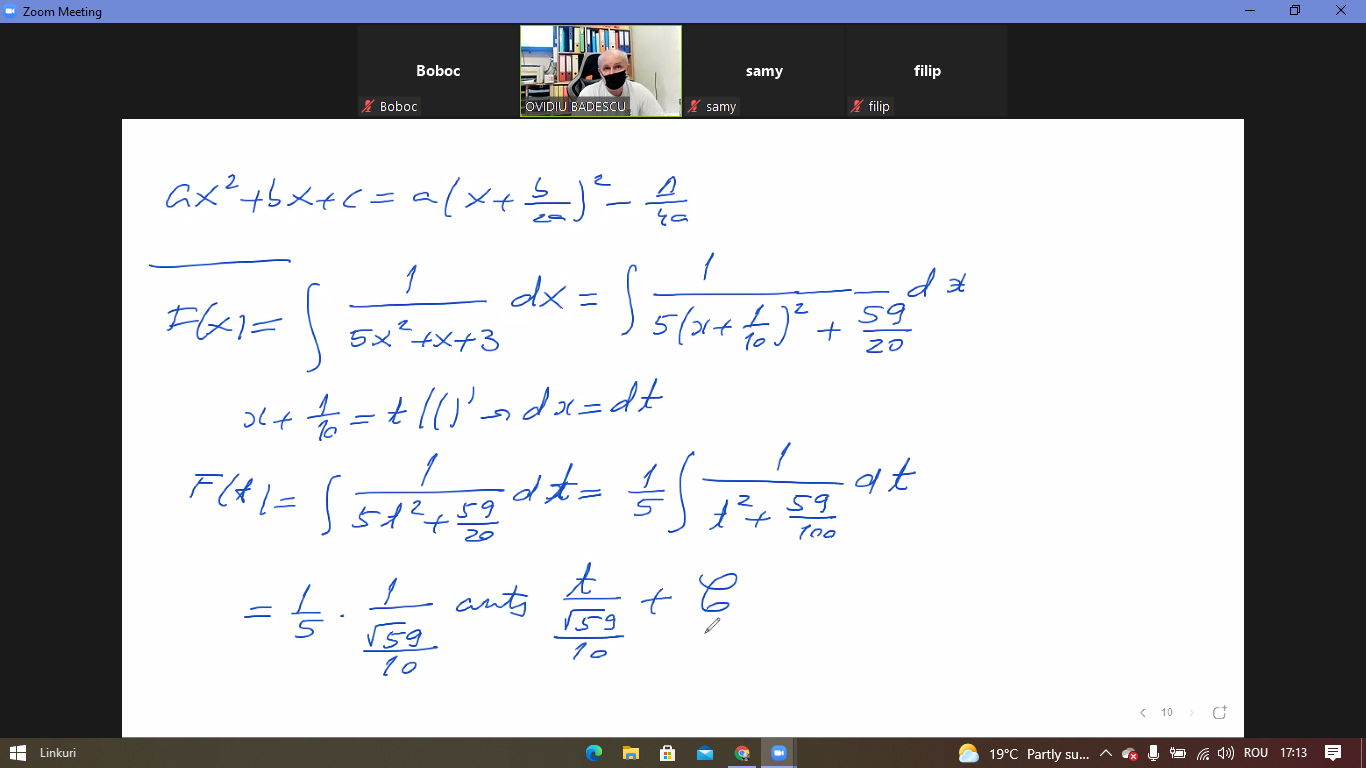 Zoom Meeting
Boboc
samy
filip
Boboc
OVIDIU BADESCU
samy
filip
ax² + bx + c = a(x + b/2a)² - Δ/4a
F(x) = ∫ 1/(5x² + x + 3) dx = ∫ 1/(5(x + 1/10)² + 59/20) dx
x + 1/10 = t |( )' → dx = dt
F(t) = ∫ 1/(5t² + 59/20) dt = 1/5 ∫ 1/(t² + 59/100) dt
= 1/5 · 1/(√59/10) arctg t/(√59/10) + C
10
Linkuri
19°C Partly su...
ROU
17:13